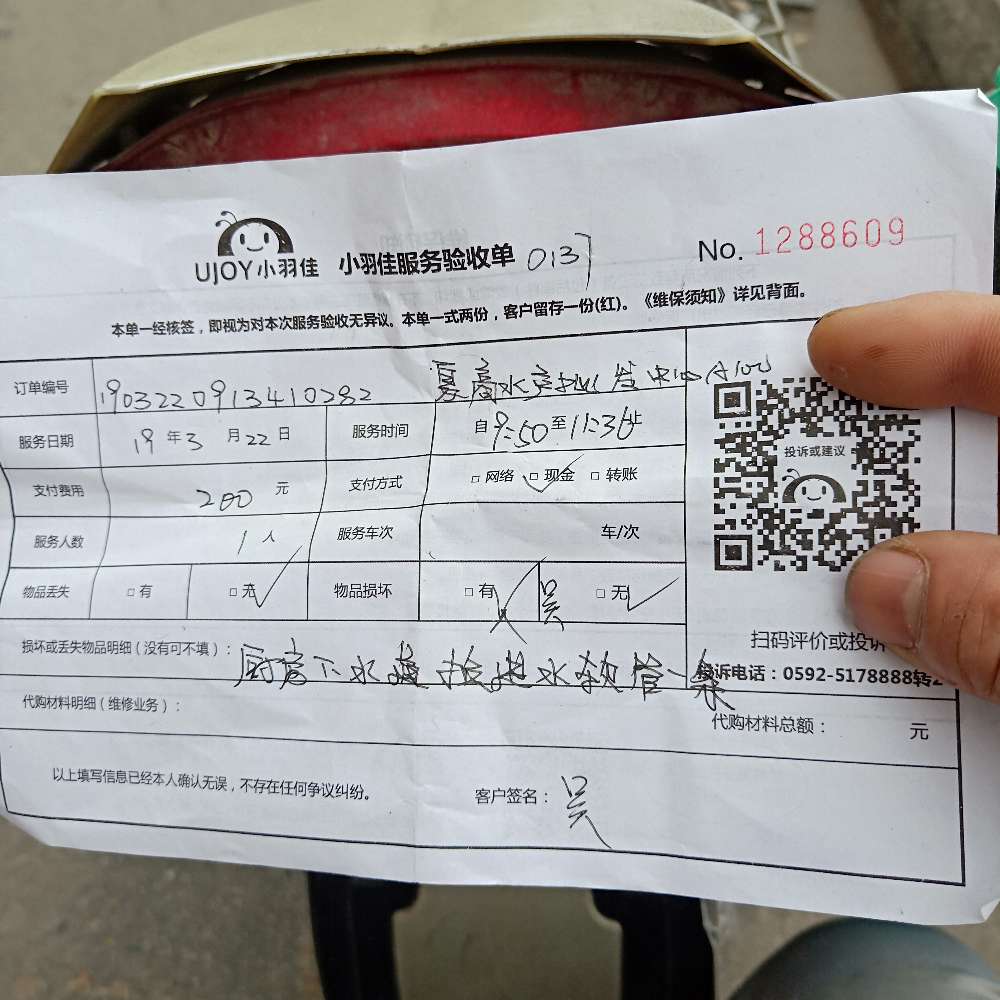 UJOY小羽佳 小羽佳服务验收单 0137 No. 1288609
本单一经核签，即视为对本次服务验收无异议。本单一式两份，客户留存一份(红)。《维保须知》详见背面。
订单编号 1903220913410282 夏商水产批发中心A100
服务日期 19年3月22日 服务时间 自9:50至11:36止
支付费用 200元 支付方式 □网络 □现金 □转账
服务人数 1人 服务车次 车/次
物品丢失 □有 □无 物品损坏 □有 吴 □无
投诉或建议
扫码评价或投诉
损坏或丢失物品明细（没有可不填）：厨房下水 接进水软管一条
投诉电话：0592-5178888转2
代购材料明细（维修业务）： 代购材料总额： 元
以上填写信息已经本人确认无误，不存在任何争议纠纷。 客户签名：吴